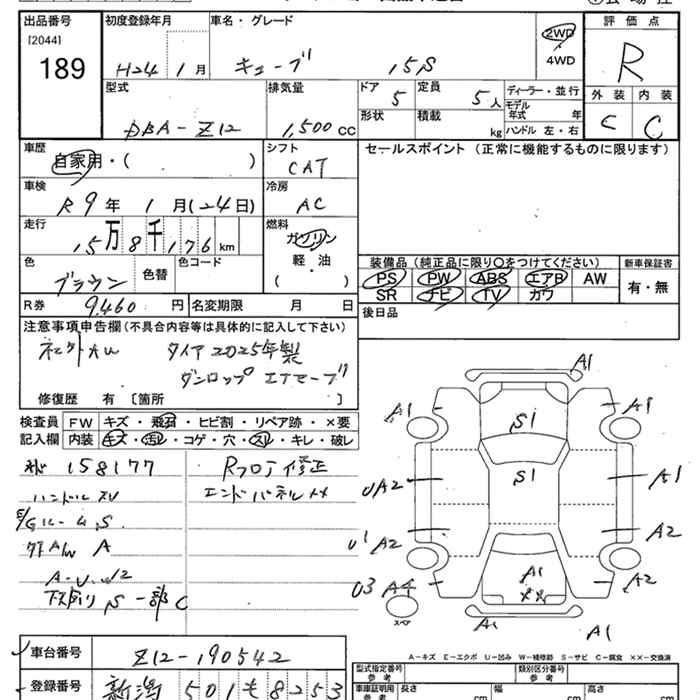 出品番号
[2044]
189
初度登録年月
H24 1月
車名・グレード
キューブ 15S
2WD
4WD
評価点
R
外装 内装
C C
型式
DBA-Z12
排気量
1,500cc
ドア
5
定員
5人
形状
積載
kg
ディーラー・並行
モデル年式 年
ハンドル 左・右
車歴
自家用・( )
シフト
CAT
セールスポイント (正常に機能するものに限ります)
車検
R9年 1月(24日)
冷房
AC
走行
15万8千176km
燃料
ガソリン
軽・油
( )
色
ブラウン
色替
色コード
R券 9,460円
名変期限 月 日
装備品(純正品に限り○をつけてください)
PS PW ABS エアB AW
SR ナビ TV カワ
新車保証書
有・無
後日品
注意事項申告欄(不具合内容等は具体的に記入して下さい)
タイヤ2025年製
ダンロップ エナセーブ
修復歴 有〔箇所 〕
検査員記入欄
FW キズ・飛石・ヒビ割・リペア跡・×要
内装 キズ・汚レ・コゲ・穴・スレ・キレ・破レ
158177
Rフロア修正
ハンドルスレ
エンドパネル
A/W A
下廻りS 一部C
A1
A1
S1
A1
S1
UA2
A1
U1 A2
A2
U3 A4
A1
××
A2
スペア
A1
A1
A-キズ E-エクボ U-凹み W-補修跡 S-サビ C-腐食 ××-交換済
車台番号
Z12-190542
登録番号
新潟 501も8253
型式指定番号 参考
類別区分番号 参考
車庫証明用 参考
長さ cm
幅 cm
高さ cm